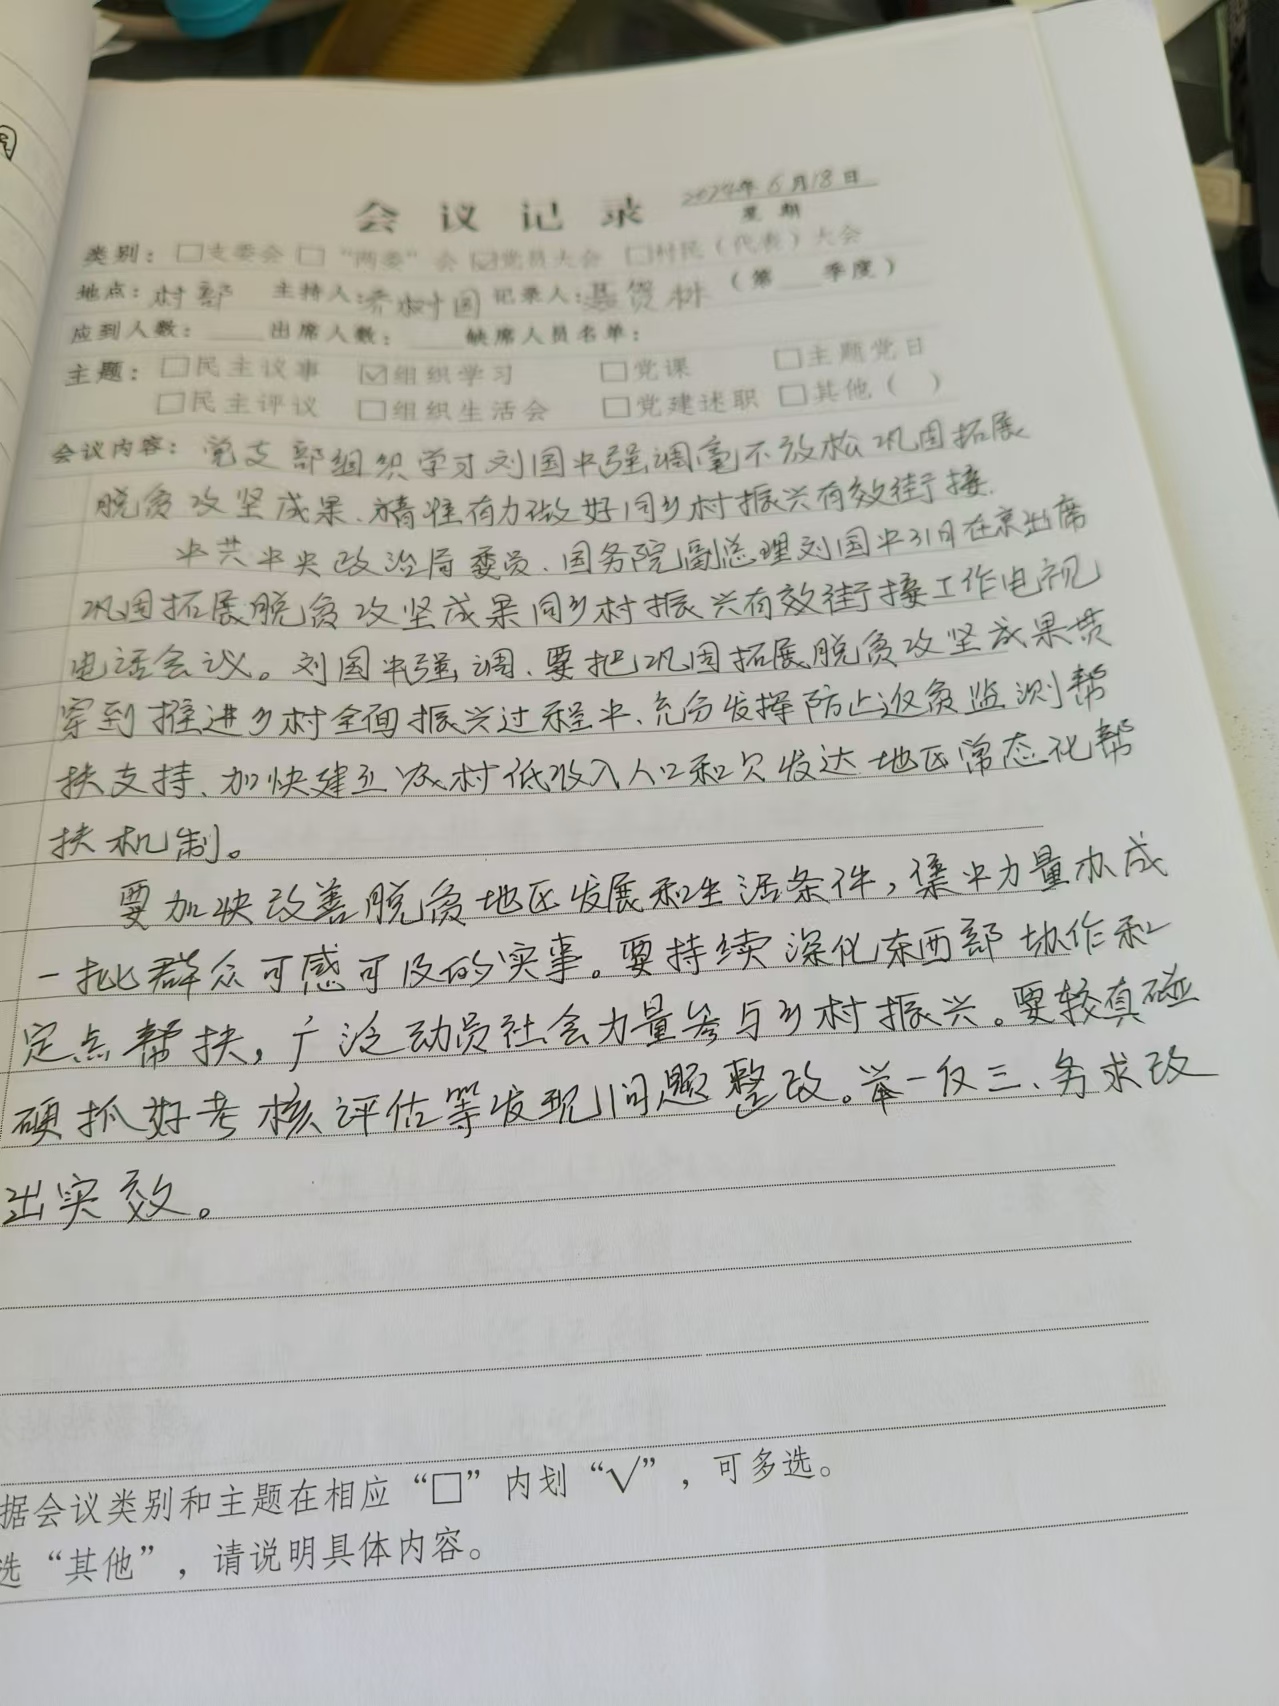 会议记录 2024年6月18日
星期
类别：□支委会 □“两委”会 ☑党员大会 □村民（代表）大会
地点：村部 主持人：乔树国 记录人：聂贺树 （第 季度）
应到人数： 出席人数： 缺席人员名单：
主题：□民主议事 ☑组织学习 □党课 □主题党日
□民主评议 □组织生活会 □党建述职 □其他（ ）
会议内容：党支部组织学习刘国中强调毫不放松巩固拓展
脱贫攻坚成果、精准有力做好同乡村振兴有效衔接.
中共中央政治局委员、国务院副总理刘国中31日在京出席
巩固拓展脱贫攻坚成果同乡村振兴有效衔接工作电视
电话会议。刘国中强调、要把巩固拓展脱贫攻坚成果贯
穿到推进乡村全面振兴过程中、充分发挥防止返贫监测帮
扶支持、加快建立农村低收入人口和欠发达地区常态化帮
扶机制。
要加快改善脱贫地区发展和生活条件，集中力量办成
一批群众可感可及的实事。要持续深化东西部协作和
定点帮扶，广泛动员社会力量参与乡村振兴。要较真碰
硬抓好考核评估等发现问题整改。举一反三、务求改
出实效。
据会议类别和主题在相应“□”内划“√”，可多选。
选“其他”，请说明具体内容。